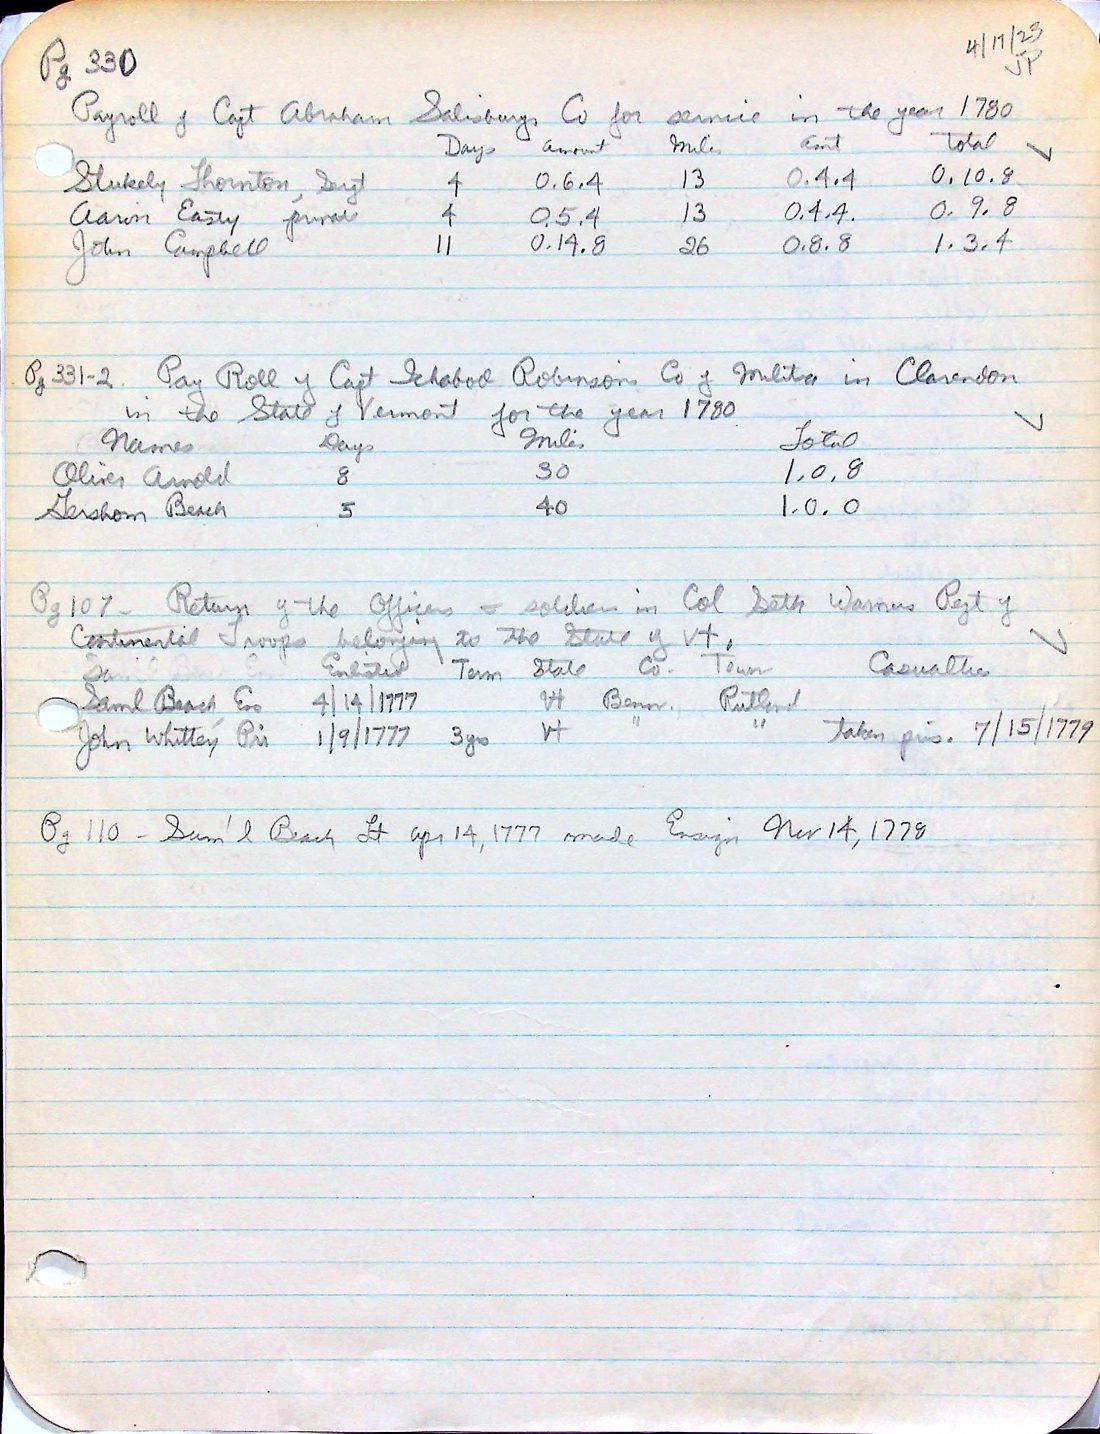 Pg 330
4/17/23
JP
Payroll of Capt Abraham Salisburys Co for service in the year 1780
Days Amount Miles Amt Total
Stukely Thornton, Sergt 4 0.6.4 13 0.4.4 0.10.8
Aaron Easty private 4 0.5.4 13 0.4.4. 0.9.8
John Campbell 11 0.14.8 26 0.8.8 1.3.4
Pg 331-2. Pay Roll of Capt Ichabod Robinsons Co of Militia in Clarendon
in the State of Vermont for the year 1780
Names Days Miles Total
Oliver Arnold 8 30 1.0.8
Gershom Beach 5 40 1.0.0
Pg 107 - Return of the Officers & soldiers in Col Seth Warners Regt of
Continental Troops belonging to the State of Vt.
Enlisted Term State Co. Town Casualties
Saml Beach Ens 4/14/1777 Vt Benn. Rutland
John Whitley Pri 1/9/1777 3yrs Vt " " taken pris. 7/15/1779
Pg 110 - Sam'l Beach Lt apr 14, 1777 made Ensign Nov 14, 1778